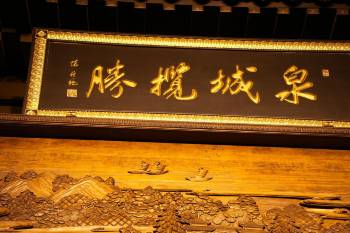 泉城攬勝